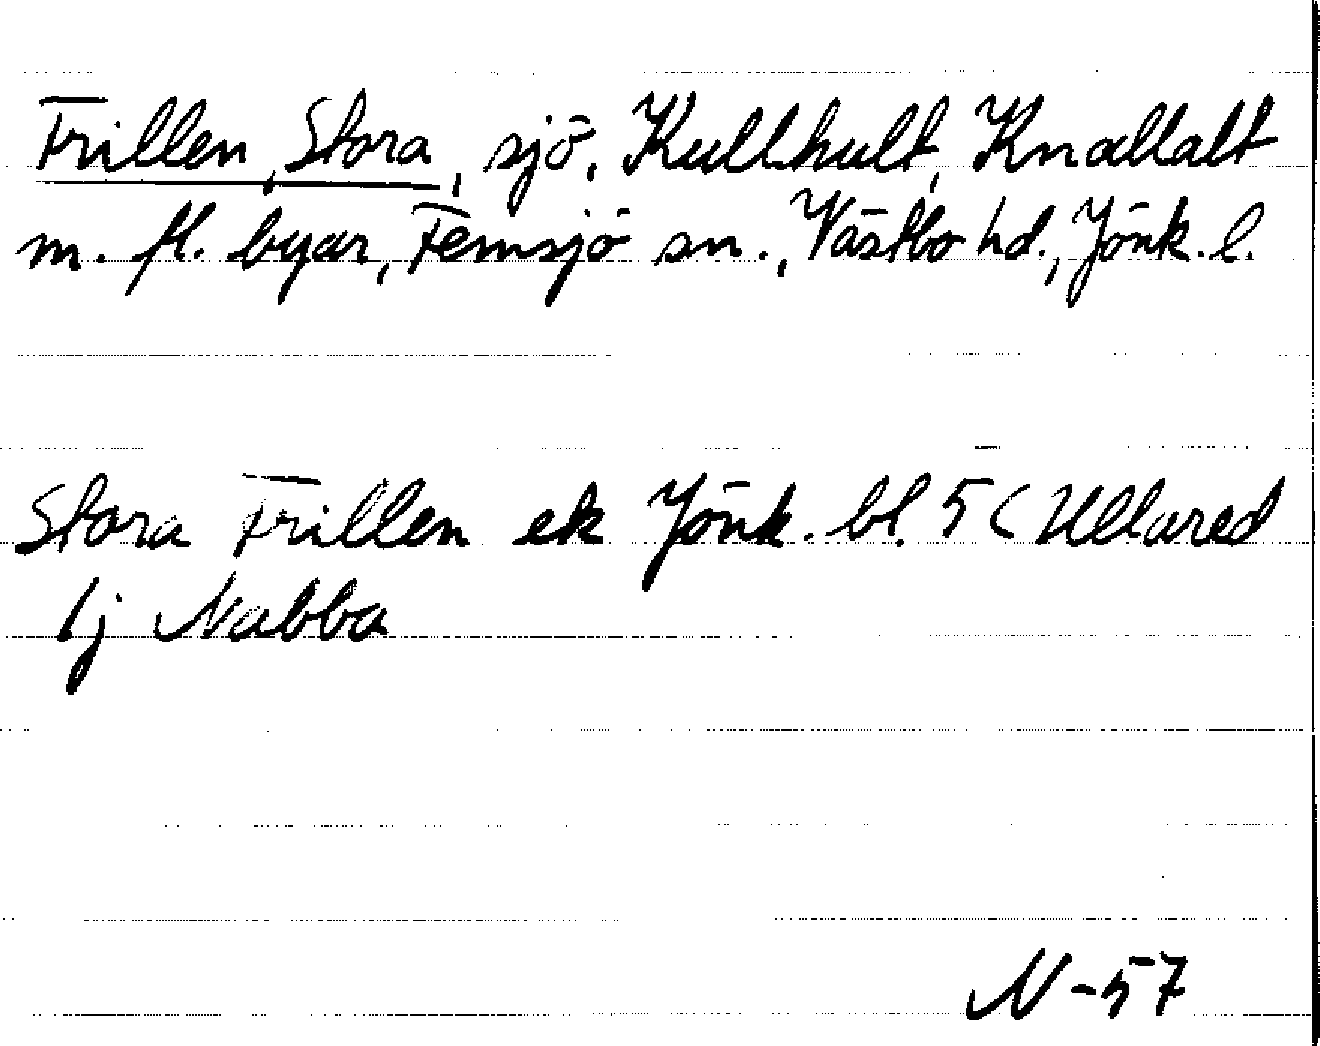 Frillen, Stora, sjö, Kullhult, Knallalt
m. fl. byar, Femsjö sn., Västbo hd., Jönk. l.
Stora Frillen ek Jönk. bl. 5 (Ullared
lj Nabba
N-57